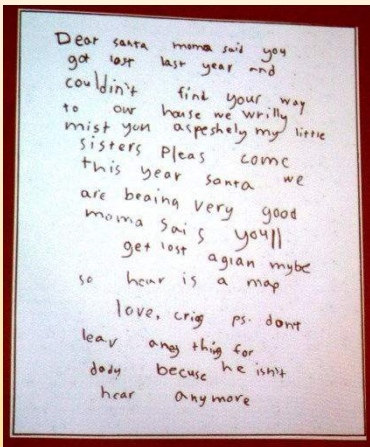 Dear santa moma said you
got lost last year and
couldin't find your way
to our house we wrilly
mist you aspeshely my little
sisters Pleas come
this year santa we
are beaing very good
moma sais you'll
get lost agian mybe
so hear is a map
love, criag ps. dont
leav aney thing for
dady becuse he isn't
hear anymore